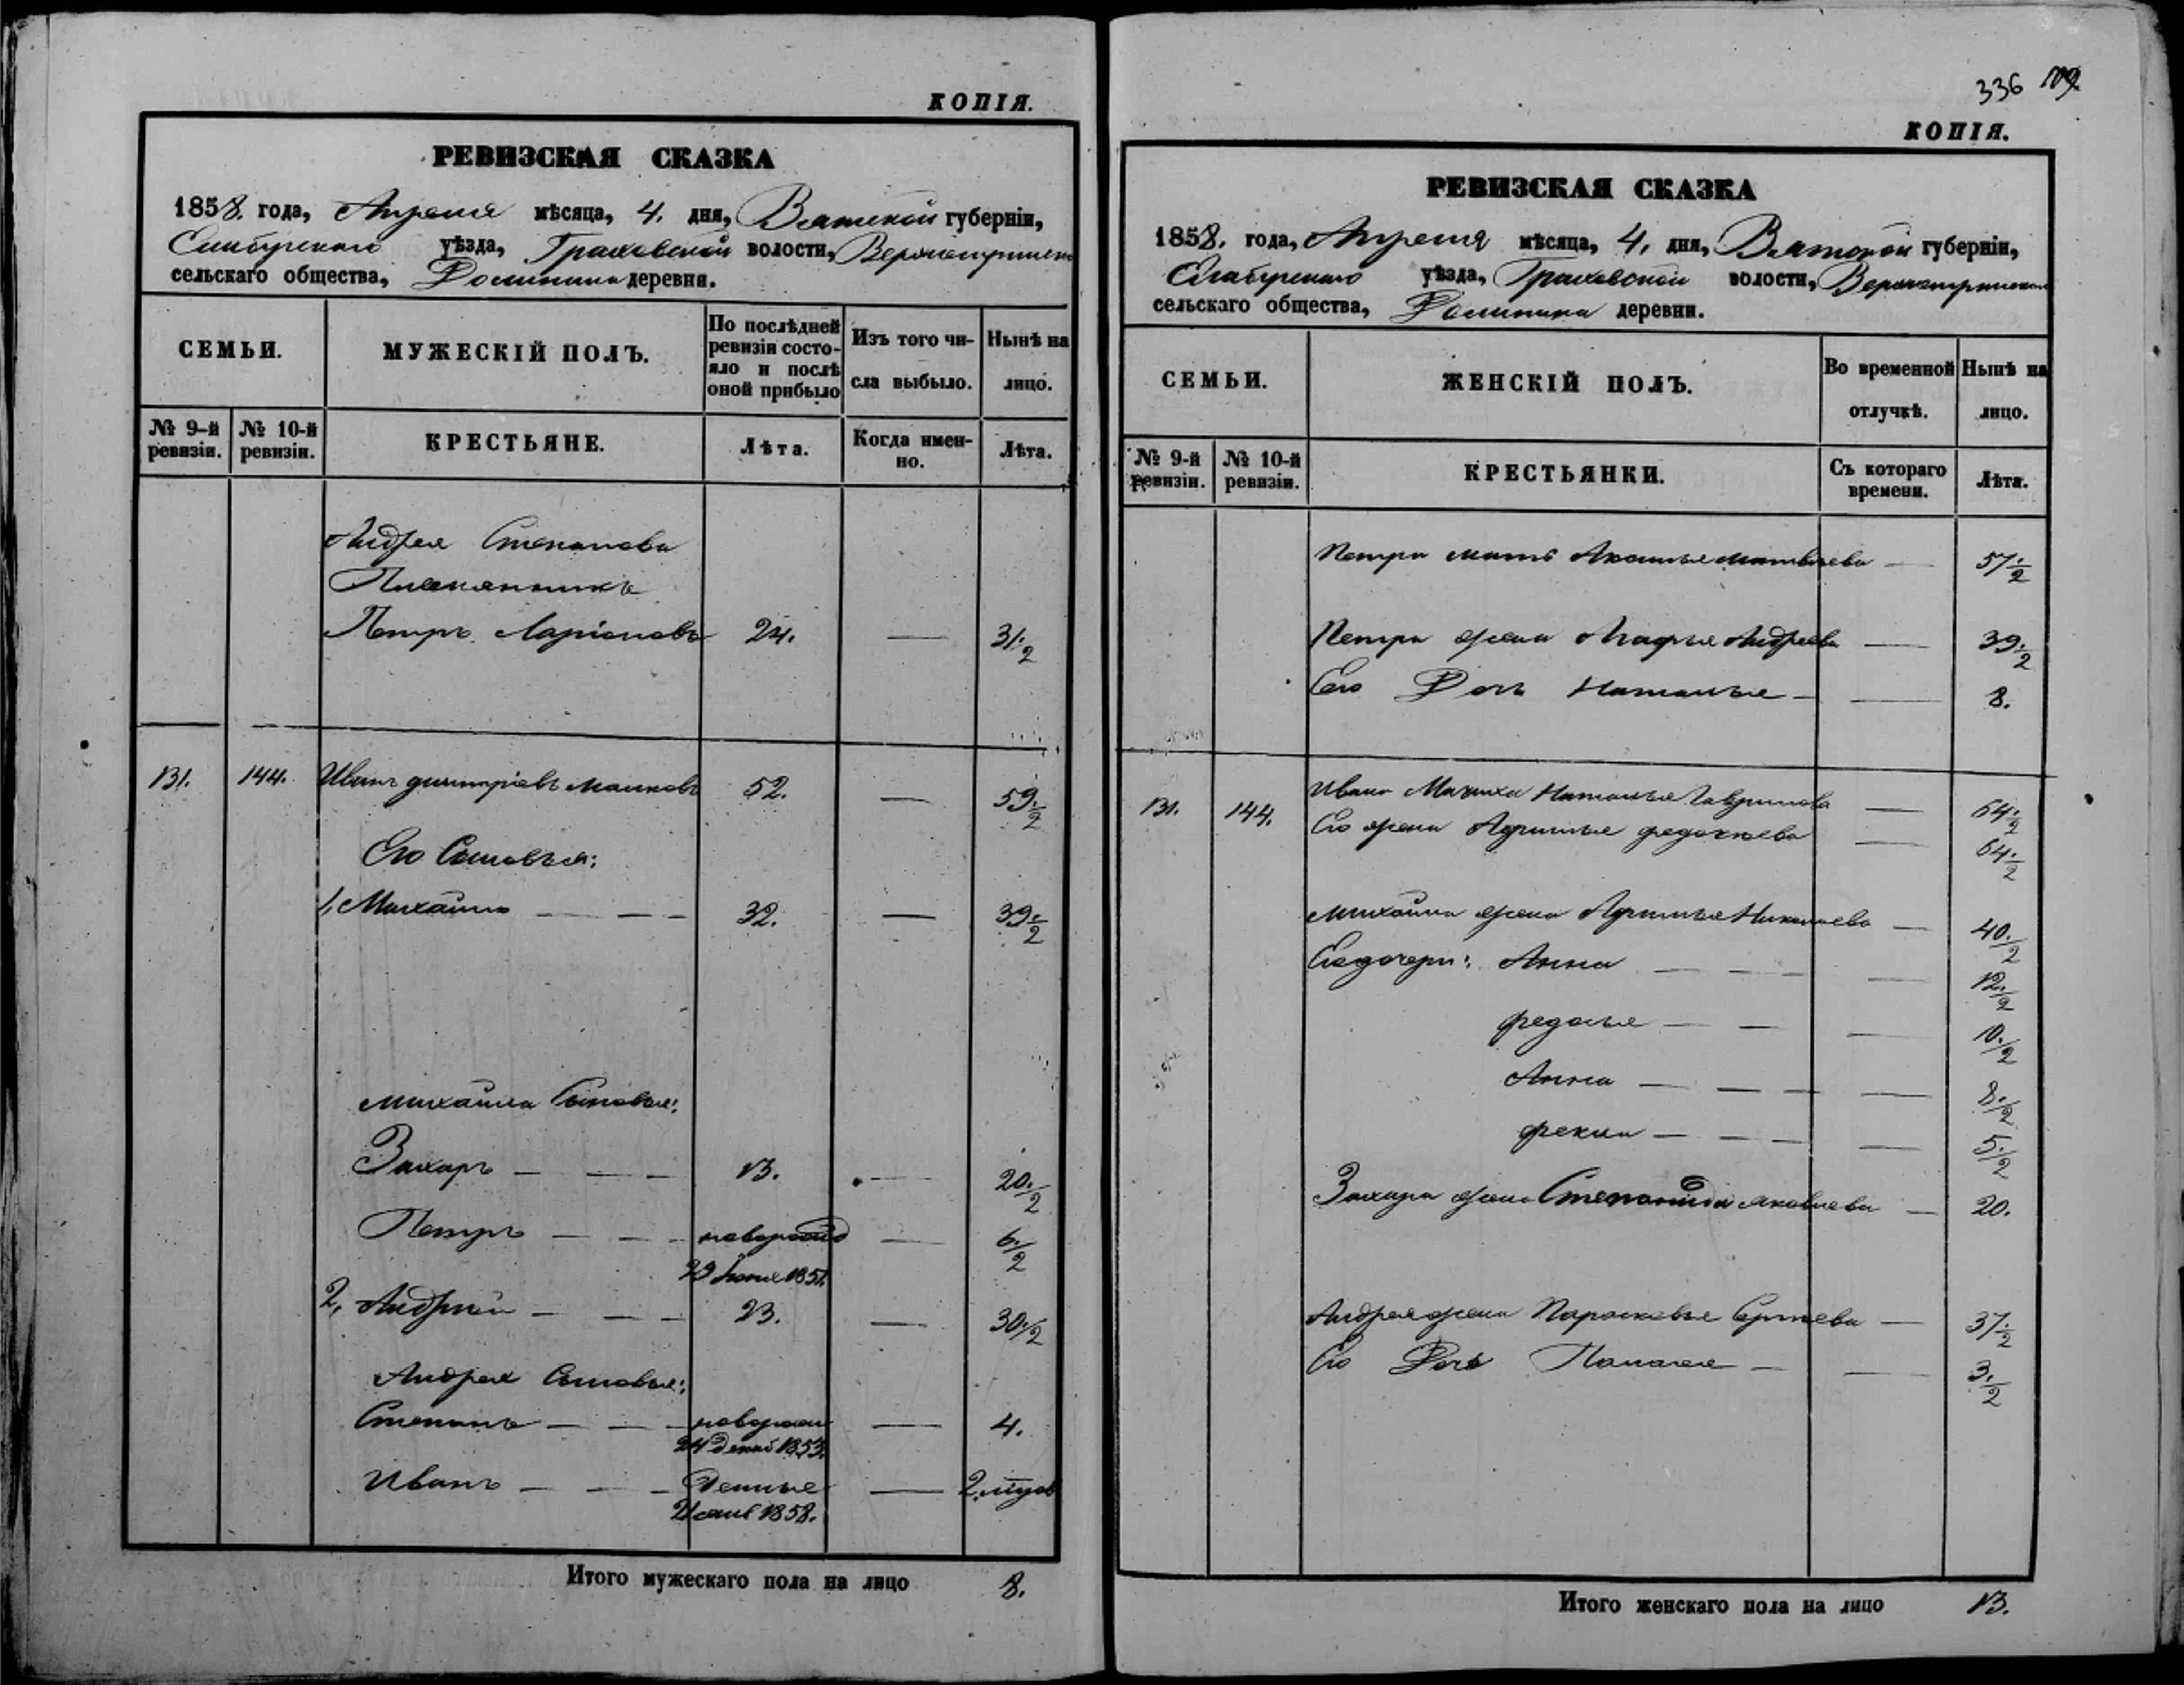 КОПІЯ.
РЕВИЗСКАЯ СКАЗКА
1858. года, Апреля мѣсяца, 4. дня, Вятской губерніи,
Елабугскаго уѣзда, Граховской волости,
сельскаго общества, деревни.
СЕМЬИ.
МУЖЕСКІЙ ПОЛЪ.
По послѣдней ревизіи состо-яло и послѣ оной прибыло
Изъ того чи-сла выбыло.
Нынѣ на лицо.
№ 9-й ревизіи.
№ 10-й ревизіи.
КРЕСТЬЯНЕ.
Лѣта.
Когда имен-но.
Лѣта.
Андрея Степанова
Племянникъ
Петръ Ларіоновъ 24. — 31 1/2
131. 144. Иванъ Дмитріевъ 52. — 59 1/2
Его Сыновья:
1, Михайло — — — 32. — 39 1/2
Михайла Сыновья:
Захаръ — — — 13. — 20 1/2
Петръ — — — новорожд — 6 1/2
29 1851.
2, Андрей — — — 23. — 30 1/2
Андрея Сыновья:
Степанъ — — — новорож — 4.
24 декаб 1853.
Иванъ — — — — 2
1858.
Итого мужескаго пола на лицо 8.
336
КОПІЯ.
РЕВИЗСКАЯ СКАЗКА
1858. года, Апреля мѣсяца, 4. дня, Вятской губерніи,
Елабугскаго уѣзда, Граховской волости,
сельскаго общества, деревни.
СЕМЬИ.
ЖЕНСКІЙ ПОЛЪ.
Во временной отлучкѣ.
Нынѣ на лицо.
№ 9-й ревизіи.
№ 10-й ревизіи.
КРЕСТЬЯНКИ.
Съ котораго времени.
Лѣта.
Петра мать Матвѣева — 57 1/2
Петра жена Агафья Андреева — 39 1/2
Его Дочь Наталья — — 8.
131. 144. Ивана Мачиха Наталья Гаврилова — 64 1/2
Его жена — 64 1/2
Михайла жена Николаева — 40 1/2
Его дочери: Анна — — — — 12 1/2
Федосья — — — 10 1/2
Анна — — — — 8 1/2
Фекла — — — — 5 1/2
Захара жена Степанида Яковлева — 20.
Андрея жена Парасковья Сергѣева — 37 1/2
Его Дочь — — 3 1/2
Итого женскаго пола на лицо 13.